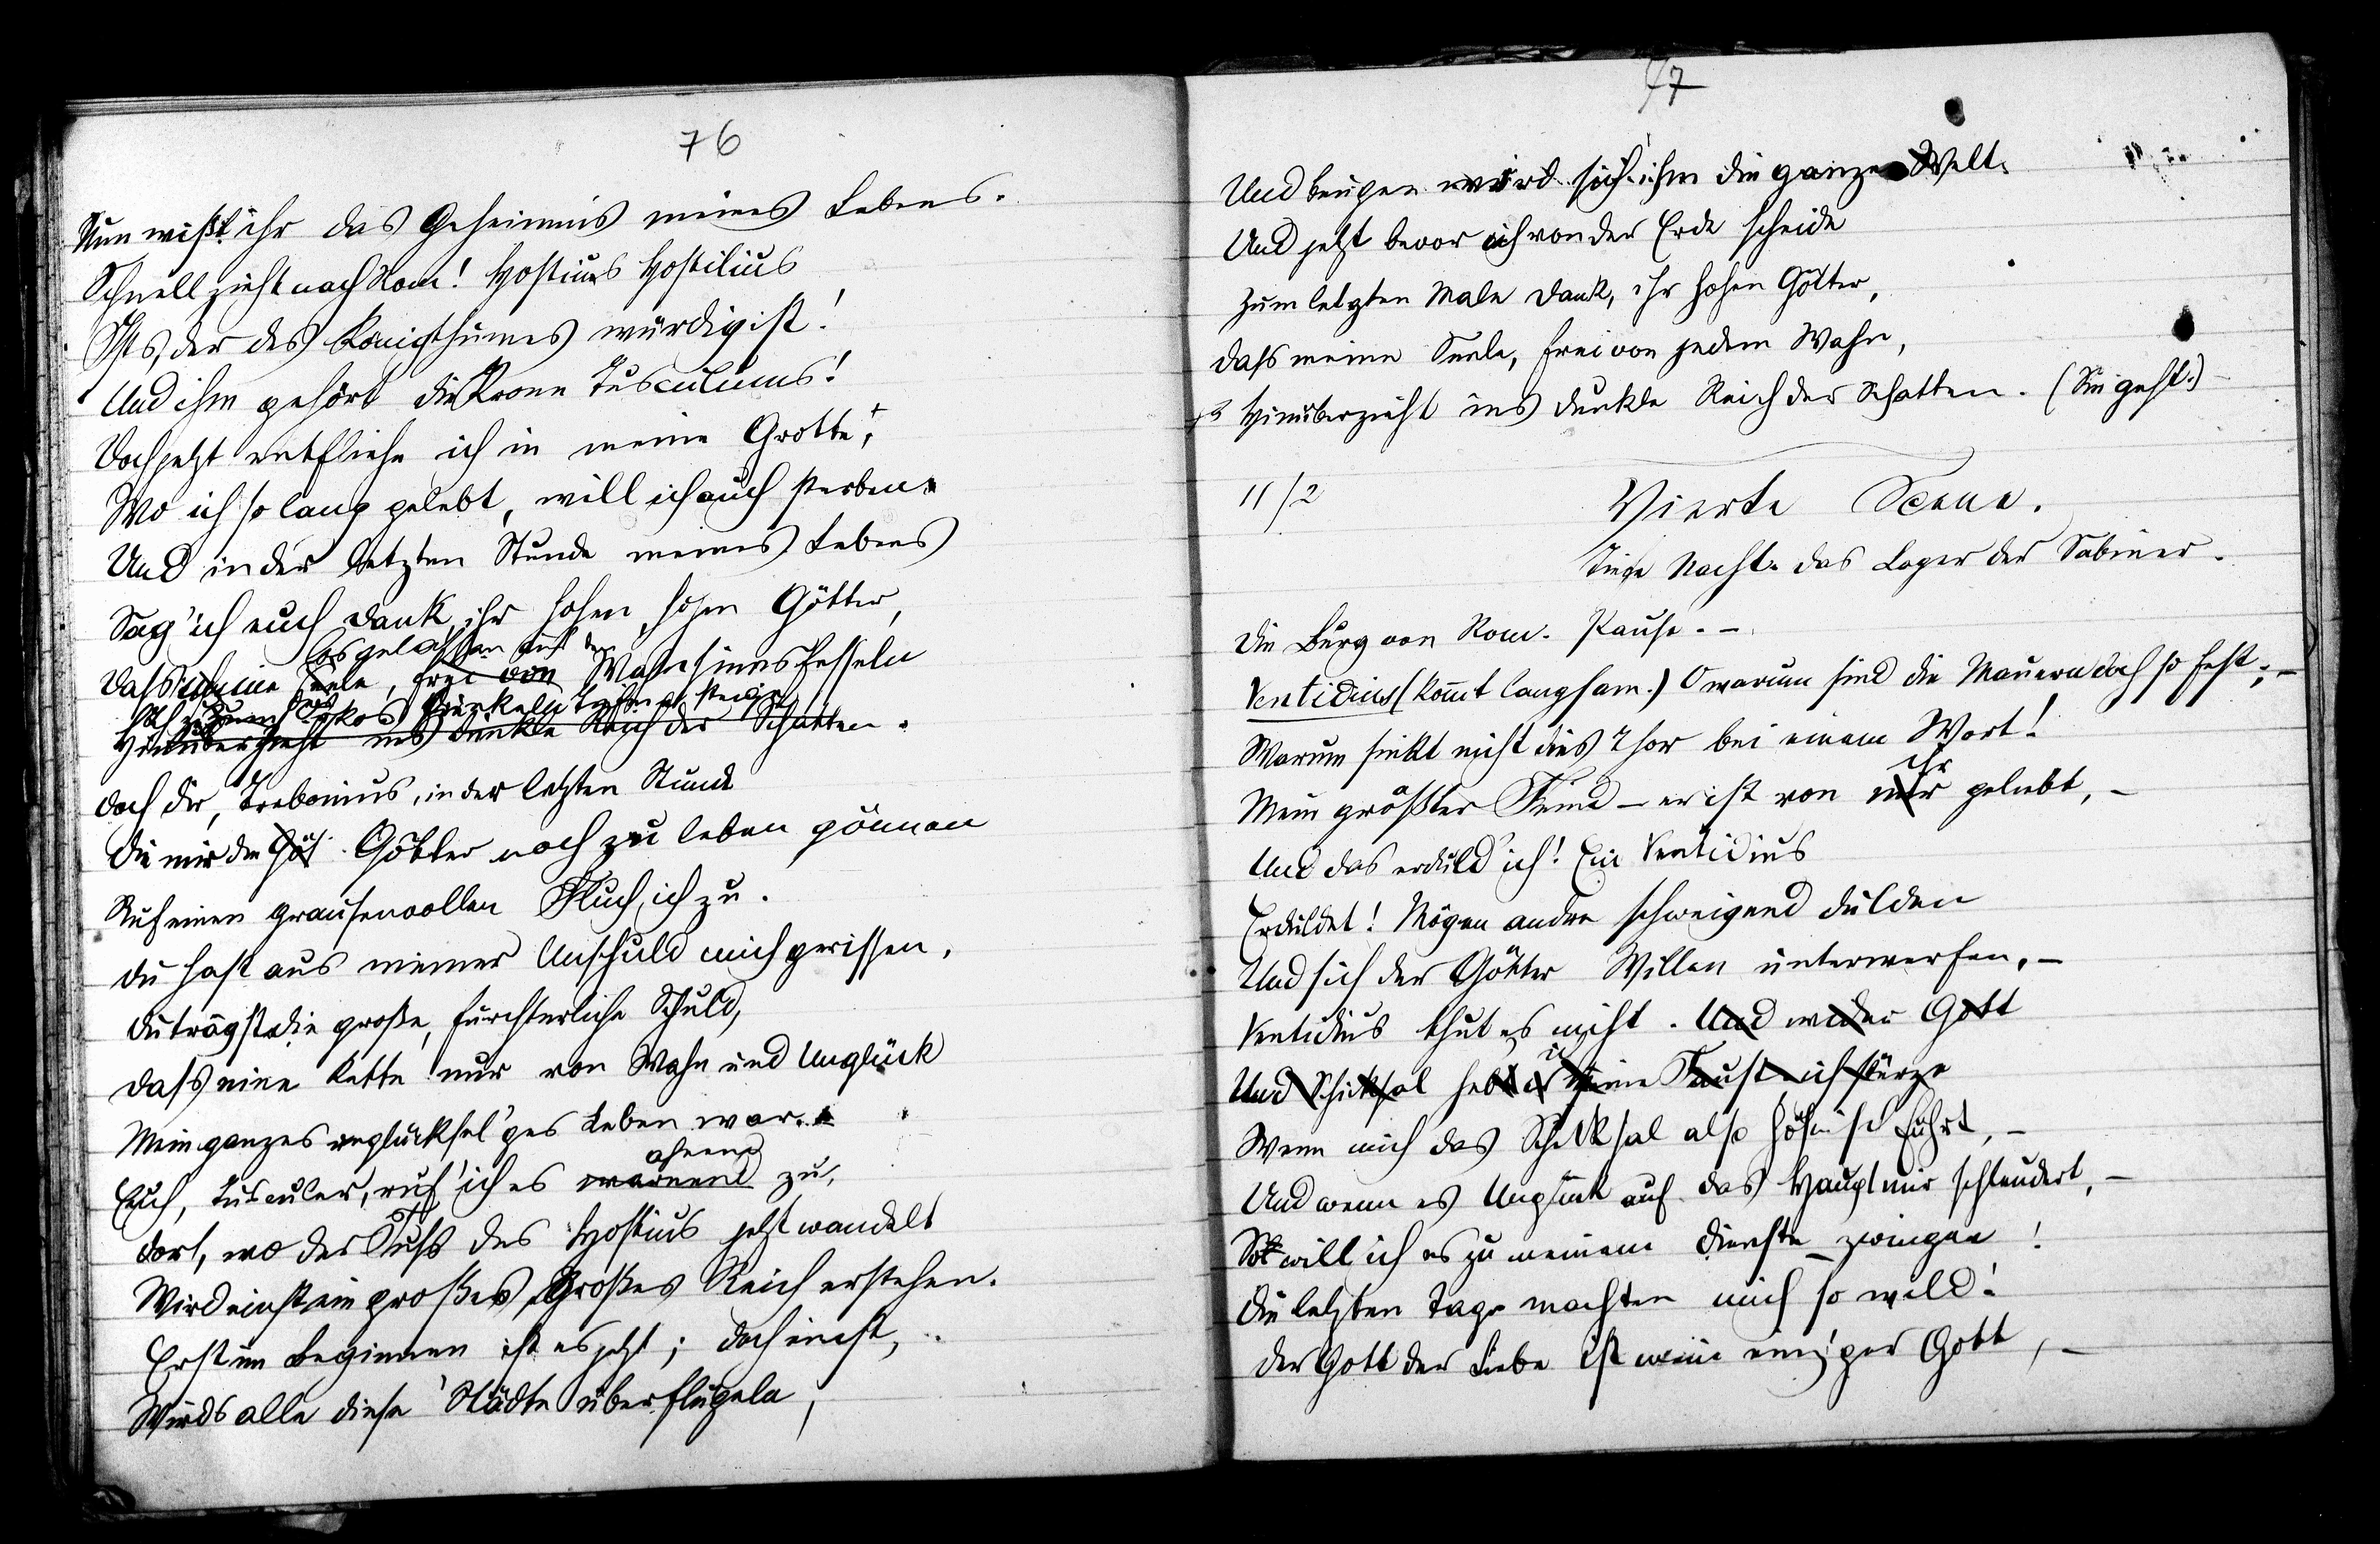 76
Nun wißt ihr das Geheimnis meines Lebens.
Schnell zieht nach Rom! Hostius Hostilius
Ists, der des Königthumes würdig ist!
Und ihm gehört die Krone Tusculums!
Doch jetzt entfliehe ich in meine Grotte,
Wo ich so lang gelebt, will ich auch sterben.
Und in der letzten Stunde meines Lebens
Sag' ich euch Dank, ihr hohen, hohen Götter,
Losgelassen aus des
Dass meine Seele, frei von Wahnsinns Fesseln
dunkeln steigt
Hinüberzieht ins dunkle Reich der Schatten.
Doch dir, Trebonius, in der letzten Stunde
Die mir die Göt Götter noch zu leben gönnen
Ruf einen grausenvollen Fluch ich zu.
Du hast aus meiner Unschuld mich gerissen,
Du trägst die große, fürchterliche Schuld,
Dass eine Kette nur von Wahn und Unglück
Mein ganzes unglücksel'ges Leben war.
ahnend
Euch, Tusculer, ruf' ich es warnend zu,
Dort, wo der Fuß des Hostius jetzt wandelt
Wird einst ein großes, großes Reich erstehen.
Erst im Beginnen ist es jetzt; doch einst,
Wirds alle diese Städte überflügeln,
77
Und beugen wird sich ihm die ganze Welt.
Und jetzt bevor ich von der Erde scheide
Zum letzten Male Dank, ihr hohen Götter,
Dass meine Seele, frei von jedem Wahn,
Hinüberzieht ins dunkle Reich der Schatten. (Sie geht.)
11/2
Vierte Scene.
Tiefe Nacht. Das Lager der Sabiner.
Die Burg von Rom. Pause. –
Ventidius (kommt langsam.) O warum sind die Mauern doch so fest; –
Warum sinkt nicht dies Thor bei einem Wort!
ihr
Mein größter Feind – er ist von mir geliebt, –
Und das erduld' ich! Ein Ventidius
Erduldet! Mögen andre schweigend dulden
Und sich der Götter Willen unterwerfen, –
Ventidius thut es nicht. Und wider Gott
Und Schicksal hebt meine Faust ich stürze
Wenn mich das Schicksal also höhnisch führt, –
Und wenn es Unglück auf das Haupt mir schleudert, –
So will ich es zu meinem Dienste zwingen!
Die letzten Tage machten mich so wild!
Der Gott der Liebe ist mein einz'ger Gott, –